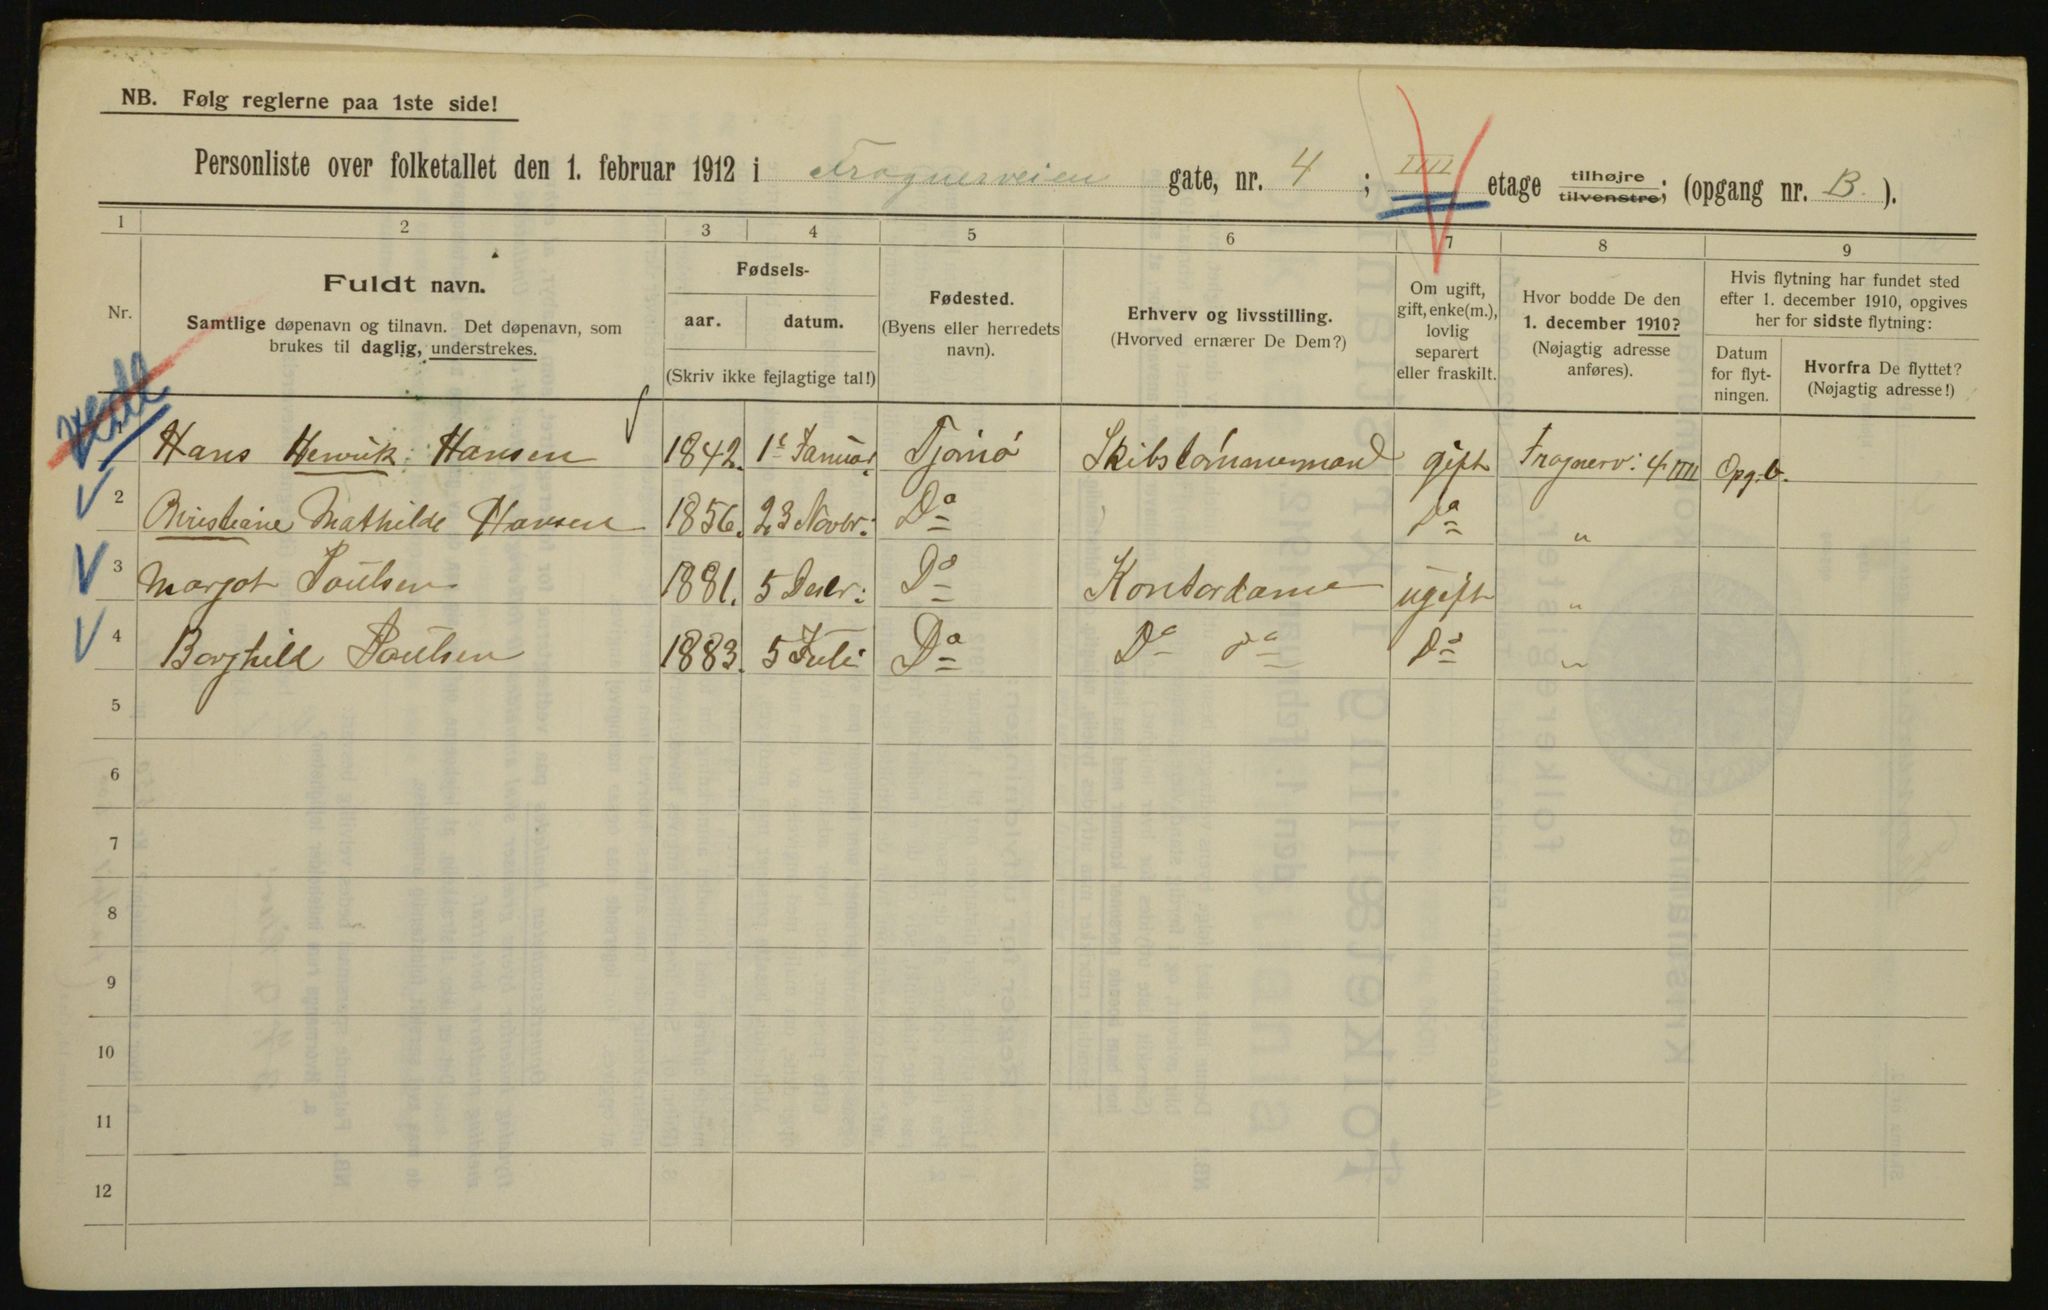 NB. Følg reglerne paa 1ste side!
Personliste over folketallet den 1. februar 1912 i Frognerveien gate, nr. 4 ; IIII etage tilhøjre tilvenstre; (opgang nr. B. ).
1 2 3 4 5 6 7 8 9
Nr.
Fuldt navn.
Samtlige døpenavn og tilnavn. Det døpenavn, som
brukes til daglig, understrekes.
Fødsels-
aar. datum.
(Skriv ikke fejlagtige tal!)
Fødested.
(Byens eller herredets
navn).
Erhverv og livsstilling.
(Hvorved ernærer De Dem?)
Om ugift,
gift, enke(m.),
lovlig
separert
eller fraskilt.
Hvor bodde De den
1. december 1910?
(Nøjagtig adresse
anføres).
Hvis flytning har fundet sted
efter 1. december 1910, opgives
her for sidste flytning:
Datum
for flyt-
ningen.
Hvorfra De flyttet?
(Nøjagtig adresse!)
Hans Henrik Hansen 1842. 1ᵗ Januar Tjømø Skibstømmermand gift Frognerv: 4 IIII Opg. b.
2 Christiane Mathilde Hansen 1856. 23 Novbr: Dº Dº "
3 Margot Poulsen 1881. 5 Decbr: Dº Kontordame ugift "
4 Borghild Poulsen 1883. 5 Juli Dº Dº Dº Dº "
5
6
7
8
9
10
11
12